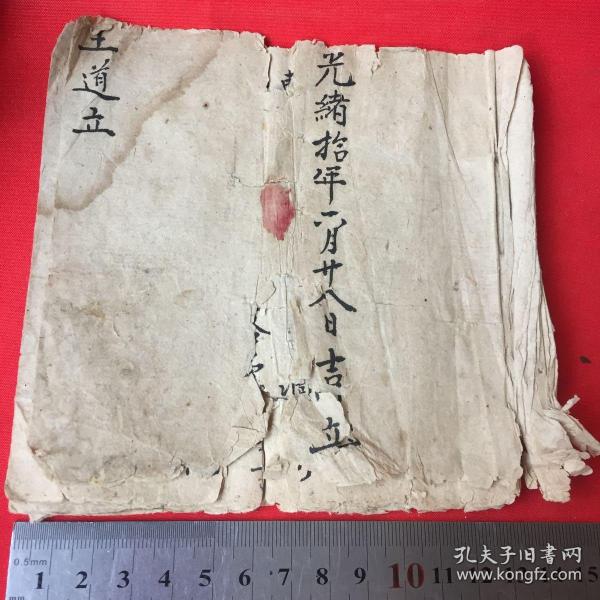 光緒拾年八月廿八日吉立
王道立
0.5mm 1 2 3 4 5 6 7 8 9 10 11 12 13 14 15
孔夫子旧书网
www.kongfz.com